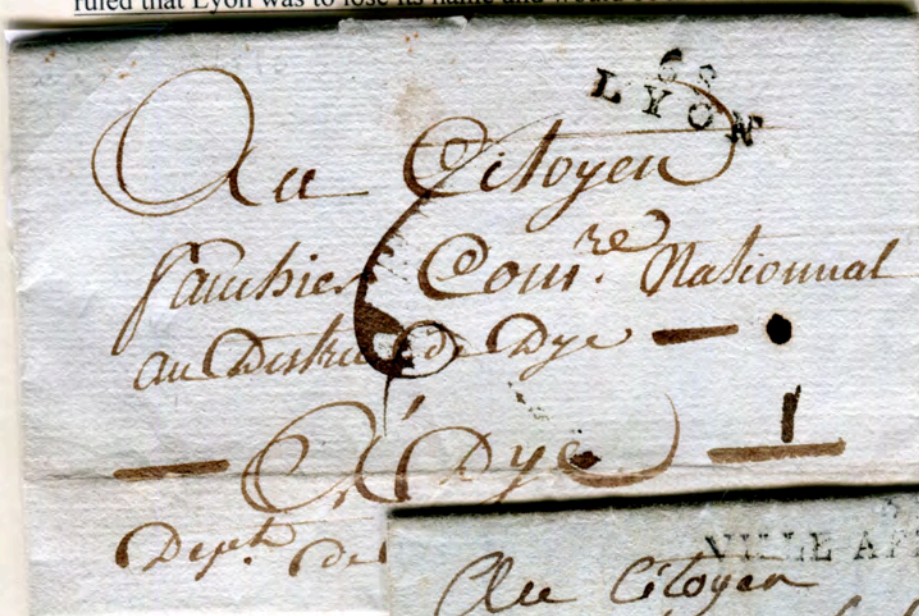 ruled that Lyon was to lose its name and would
68
LYON
Au Citoyen
Gauthier Com.re Nationnal
au District de Dye
6
A Dye
Dept. de
VILLE AF
Au Citoyen